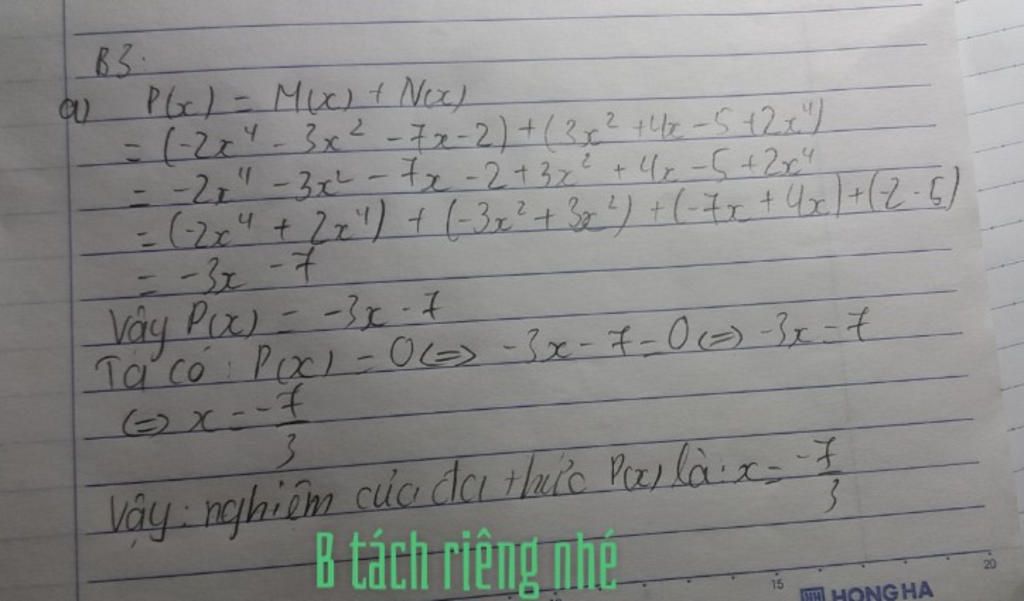 B3.
a) P(x) = M(x) + N(x)
= (-2x⁴ - 3x² - 7x - 2) + (3x² + 4x - 5 + 2x⁴)
= -2x⁴ - 3x² - 7x - 2 + 3x² + 4x - 5 + 2x⁴
= (-2x⁴ + 2x⁴) + (-3x² + 3x²) + (-7x + 4x) + (-2 - 5)
= -3x - 7
Vậy P(x) = -3x - 7
Ta có : P(x) = 0 <=> -3x - 7 = 0 <=> -3x = 7
<=> x = -7/3
Vậy : nghiệm của đa thức P(x) là : x = -7/3
B tách riêng nhé
15 20
HONG HA